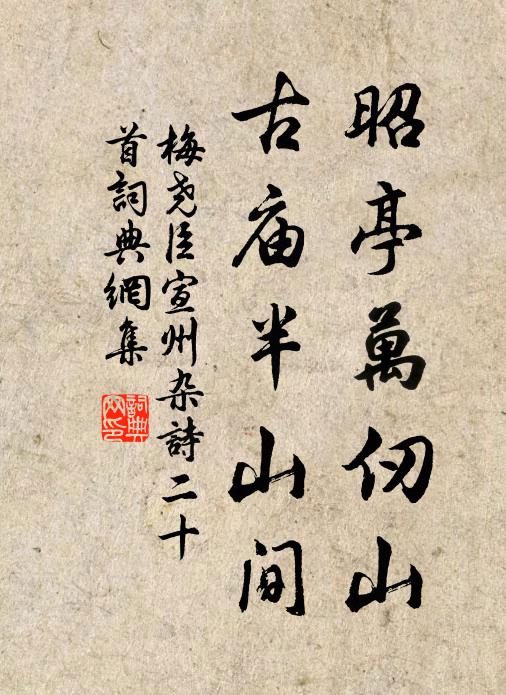 昭亭萬仞山
古庙半山间
梅尧臣宣州杂詩二十
首詞典網集
詞典
网印